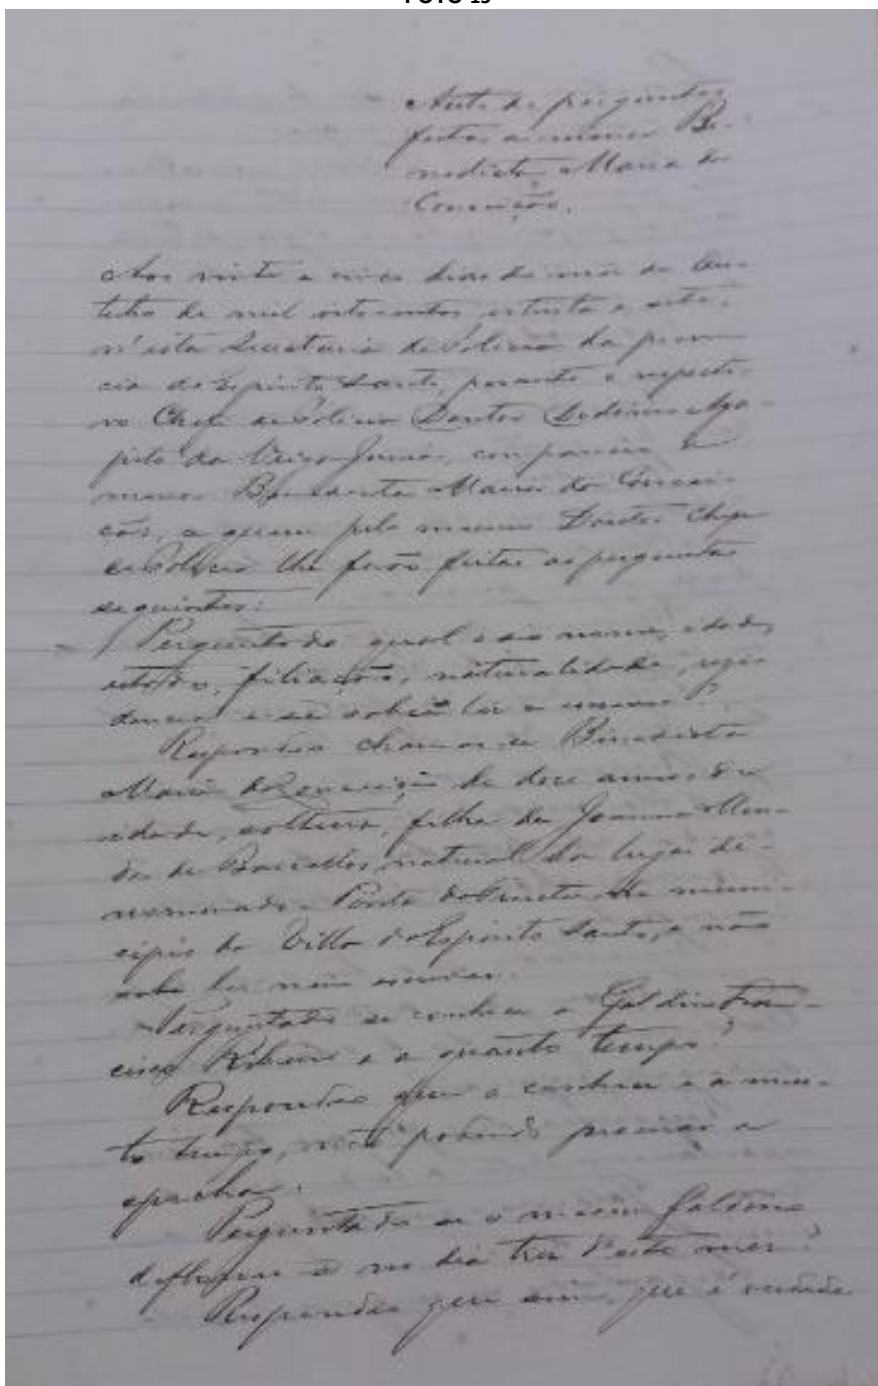 FOTO 15
Auto de perguntas
feitas a menor Be-
nedicta Maria da
Conceição.
Aos vinte e cinco dias do mez de Ou-
tubro de mil oitocentos oitenta e sete,
n'esta Secretaria de Policia da provin
cia do Espirito Santo, perante o respecti-
vo Chefe de Policia Doutor
da Veiga Junior, compareceu a
menor Benedicta Maria da Concei-
ção, a quem pelo mesmo Doutor Chefe
de Policia lhe forão feitas as perguntas
seguintes:
Perguntado qual o seu nome, idade,
estado, filiação, naturalidade, resi
dencia e se sabia ler e escrever?
Respondeo chamar-se Benedicta
Maria da Conceição de doze annos de
idade, solteira, filha de Joanna
de natural do lugar de-
nominado Ponta da Fructa do muni-
cipio da Villa do Espirito Santo, e não
sabe ler nem escrever.
Perguntado se conhece a Galdino Fran-
cisco Ribeiro e a quanto tempo?
Respondeo que o conhece e a mui-
to tempo, não podendo precisar a
epocha.
Perguntado se o mesmo Galdino
a no dia tres d'este mez?
Respondeo que sim, que é verdade